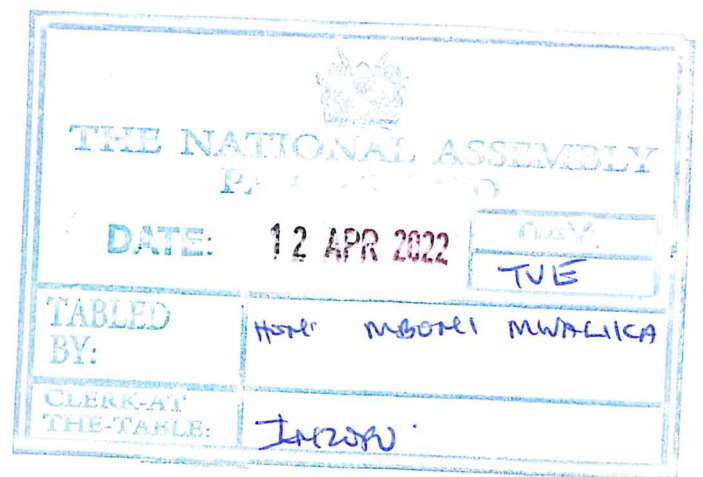 THE NATIONAL ASSEMBLY
DATE: 12 APR 2022 DAY.
TUE
TABLED BY: HON. MBONI MWALIKA
CLERK-AT THE-TABLE: